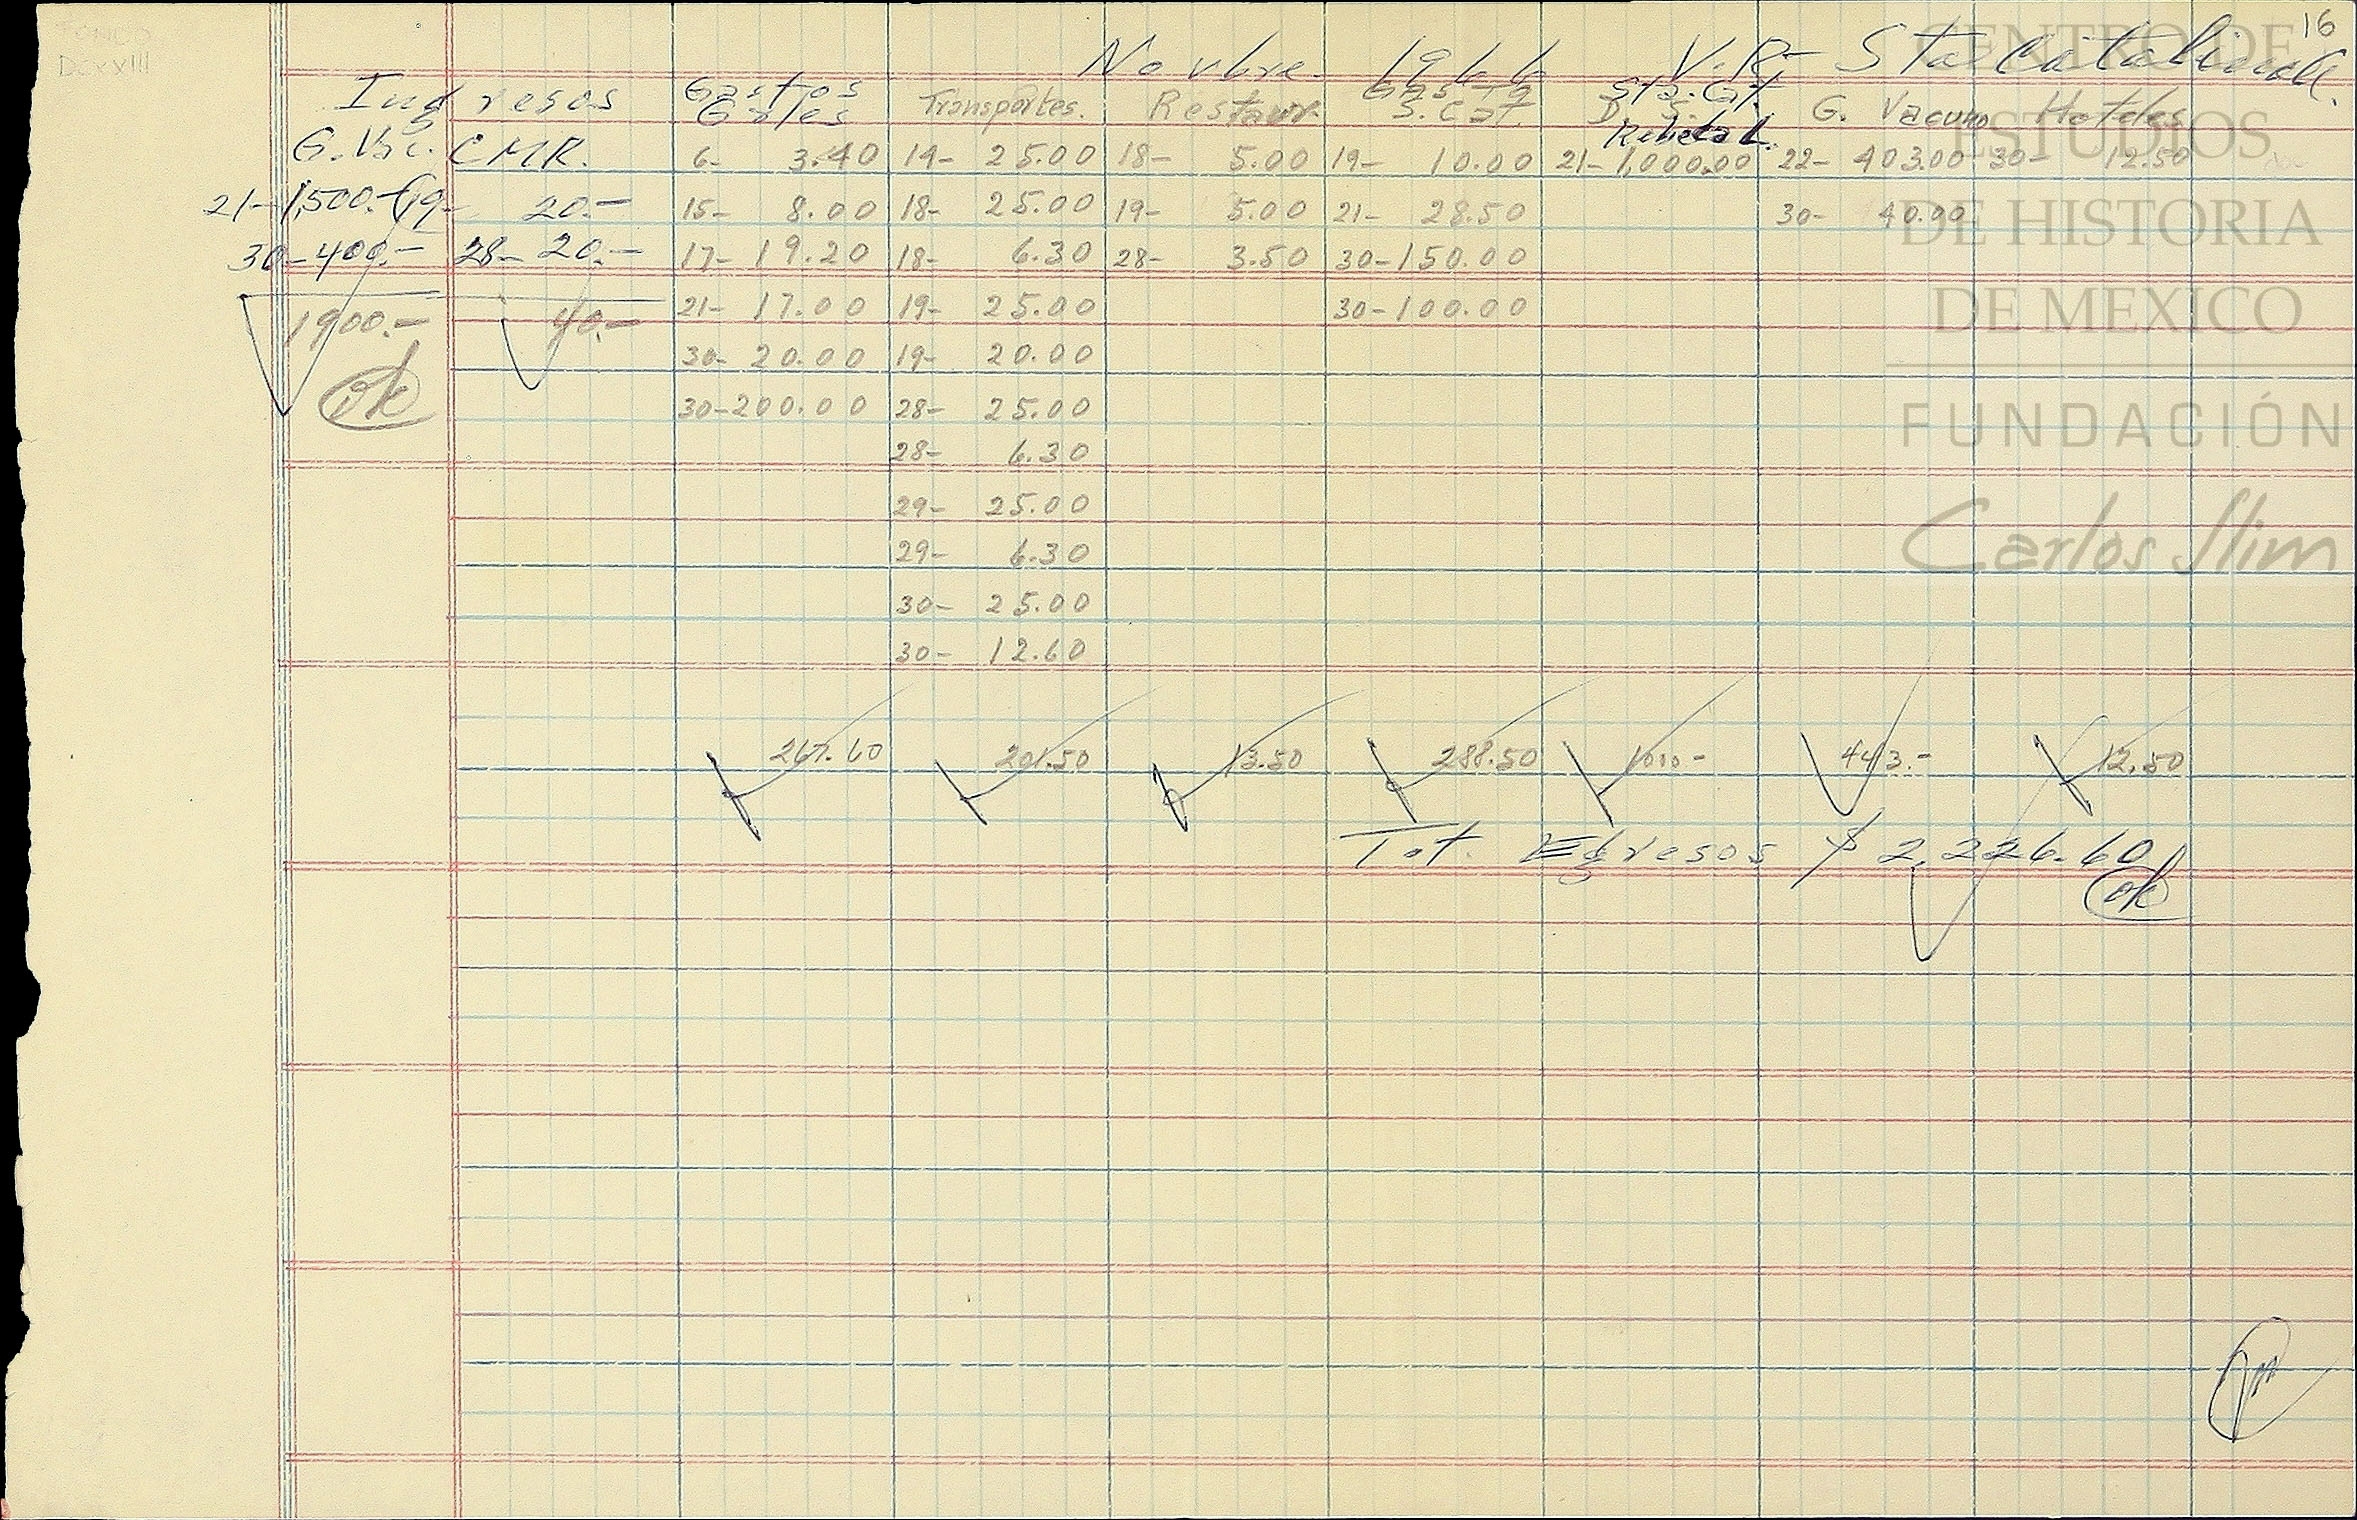 FONDO
DCXXIII
16
CENTRO DE
ESTUDIOS
DE HISTORIA
DE MEXICO
FUNDACIÓN
Carlos Slim
Novbre. 1966 V.R. Sta Catalina
Ingresos Gastos Grles Transportes. Restaur. Gastos S. Cat. Sta. Cat. G. Vacuno Hoteles
G. Vac. C M R. 6- 3.40 14- 25.00 18- 5.00 19- 10.00 21- 1,000.00 22- 403.00 30- 12.50
21- 1,500.- 19- 20.- 15- 8.00 18- 25.00 19- 5.00 21- 28.50 30- 40.00
30- 400.- 28- 20.- 17- 19.20 18- 6.30 28- 3.50 30- 150.00
1900.- 40.- 21- 17.00 19- 25.00 30- 100.00
30- 20.00 19- 20.00
ok 30- 200.00 28- 25.00
28- 6.30
29- 25.00
29- 6.30
30- 25.00
30- 12.60
267.60 201.50 13.50 288.50 1000- 443.- 12.50
Tot. Egresos $ 2,226.60
ok